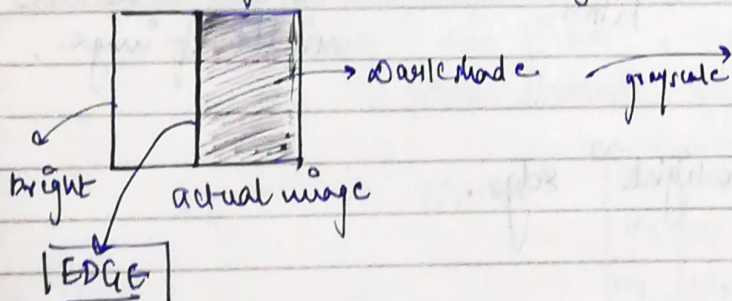 Dark shade
grayscale
bright
actual image
EDGE